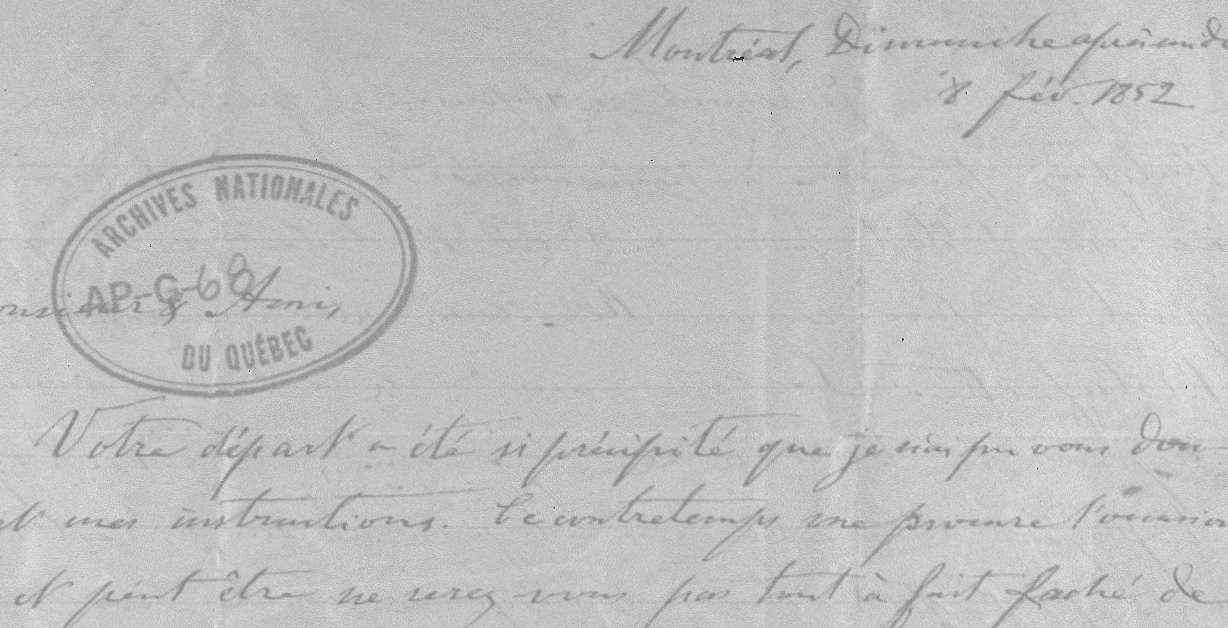 Montréal, Dimanche après midi
8 fév. 1852
ARCHIVES NATIONALES
AP-G-68
DU QUÉBEC
onsieur & Ami,
Votre départ a été si précipité que je n'ai pu vous don
mes instructions. Ce contretemps me procure l'occasion
et peut être ne serez-vous pas tout à fait faché de